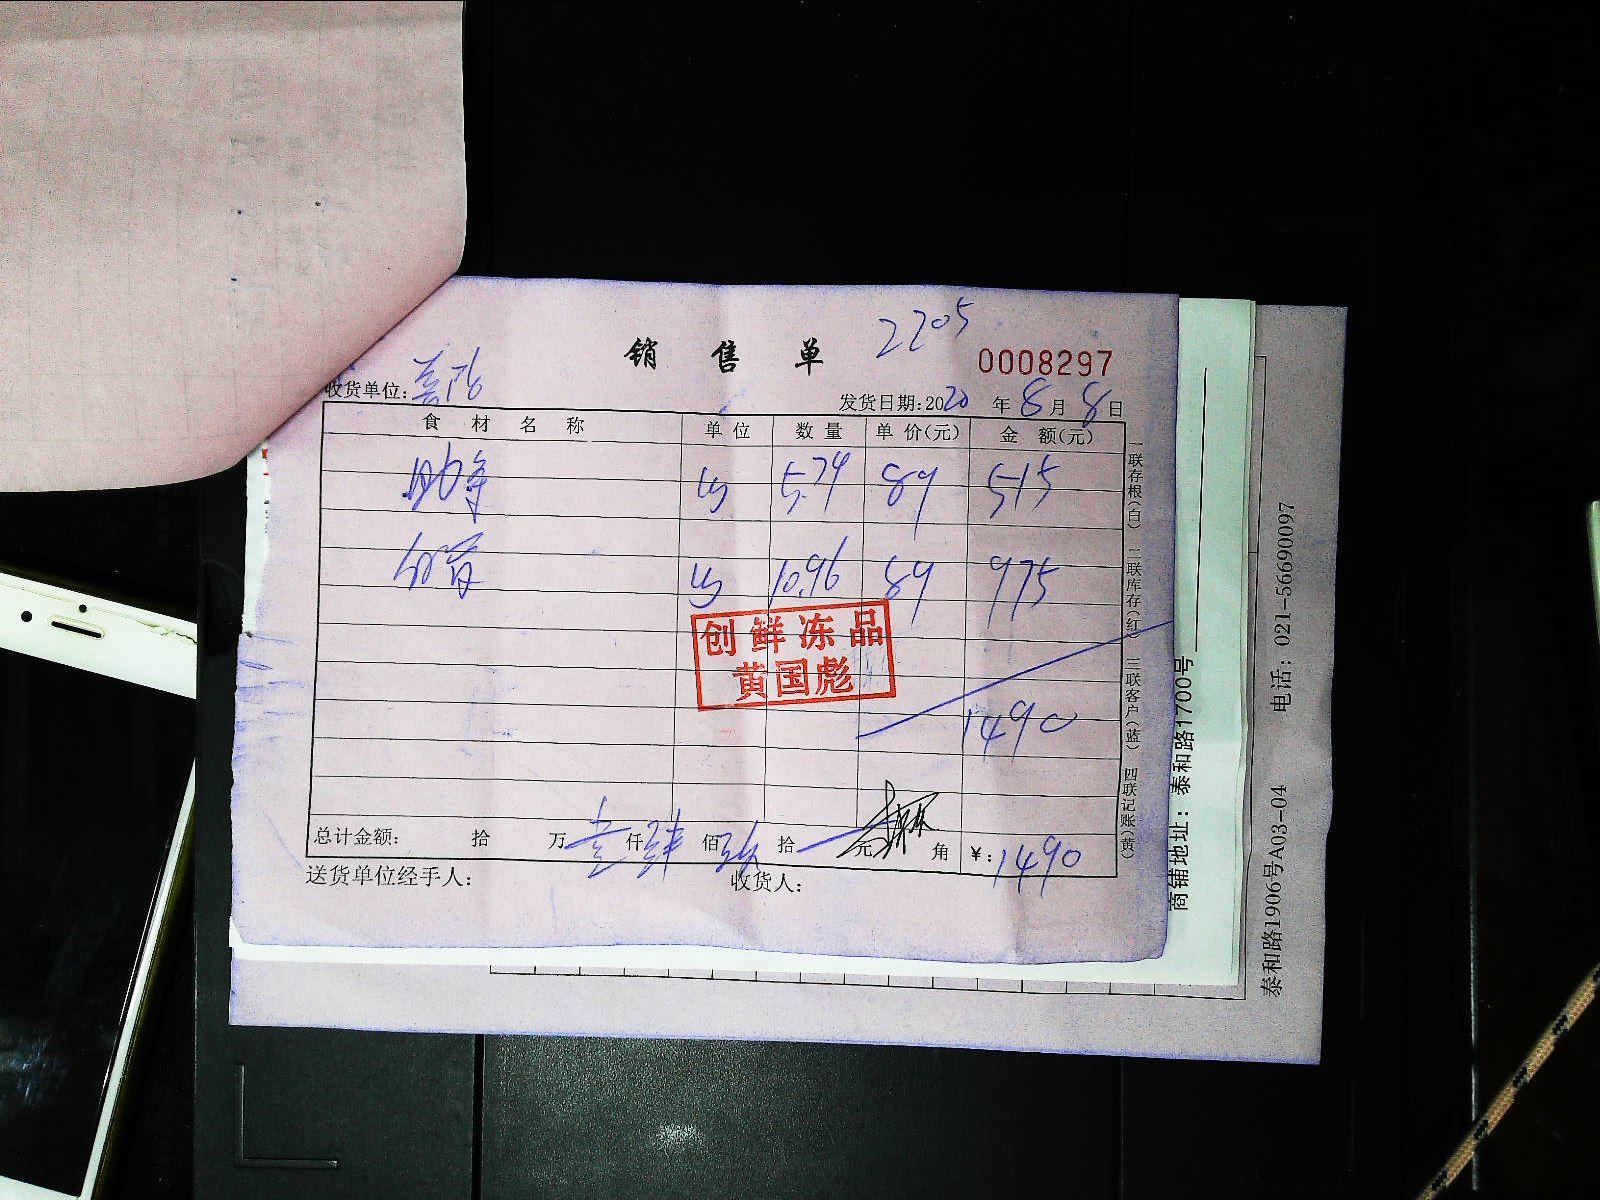 2205
销售单
0008297
收货单位:
发货日期:2020年8月8日
食材名称 单位 数量 单价(元) 金额(元)
5.79 89 515
10.96 89 975
创鲜冻品
黄国彪
1490
总计金额: 拾 万壹仟肆佰玖拾 元 角 ¥:1490
送货单位经手人: 收货人:
一联存根(白) 二联库存(红) 三联客户(蓝) 四联记账(黄)
商铺地址:泰和路1700号
泰和路1906号A03-04 电话:021-56690097